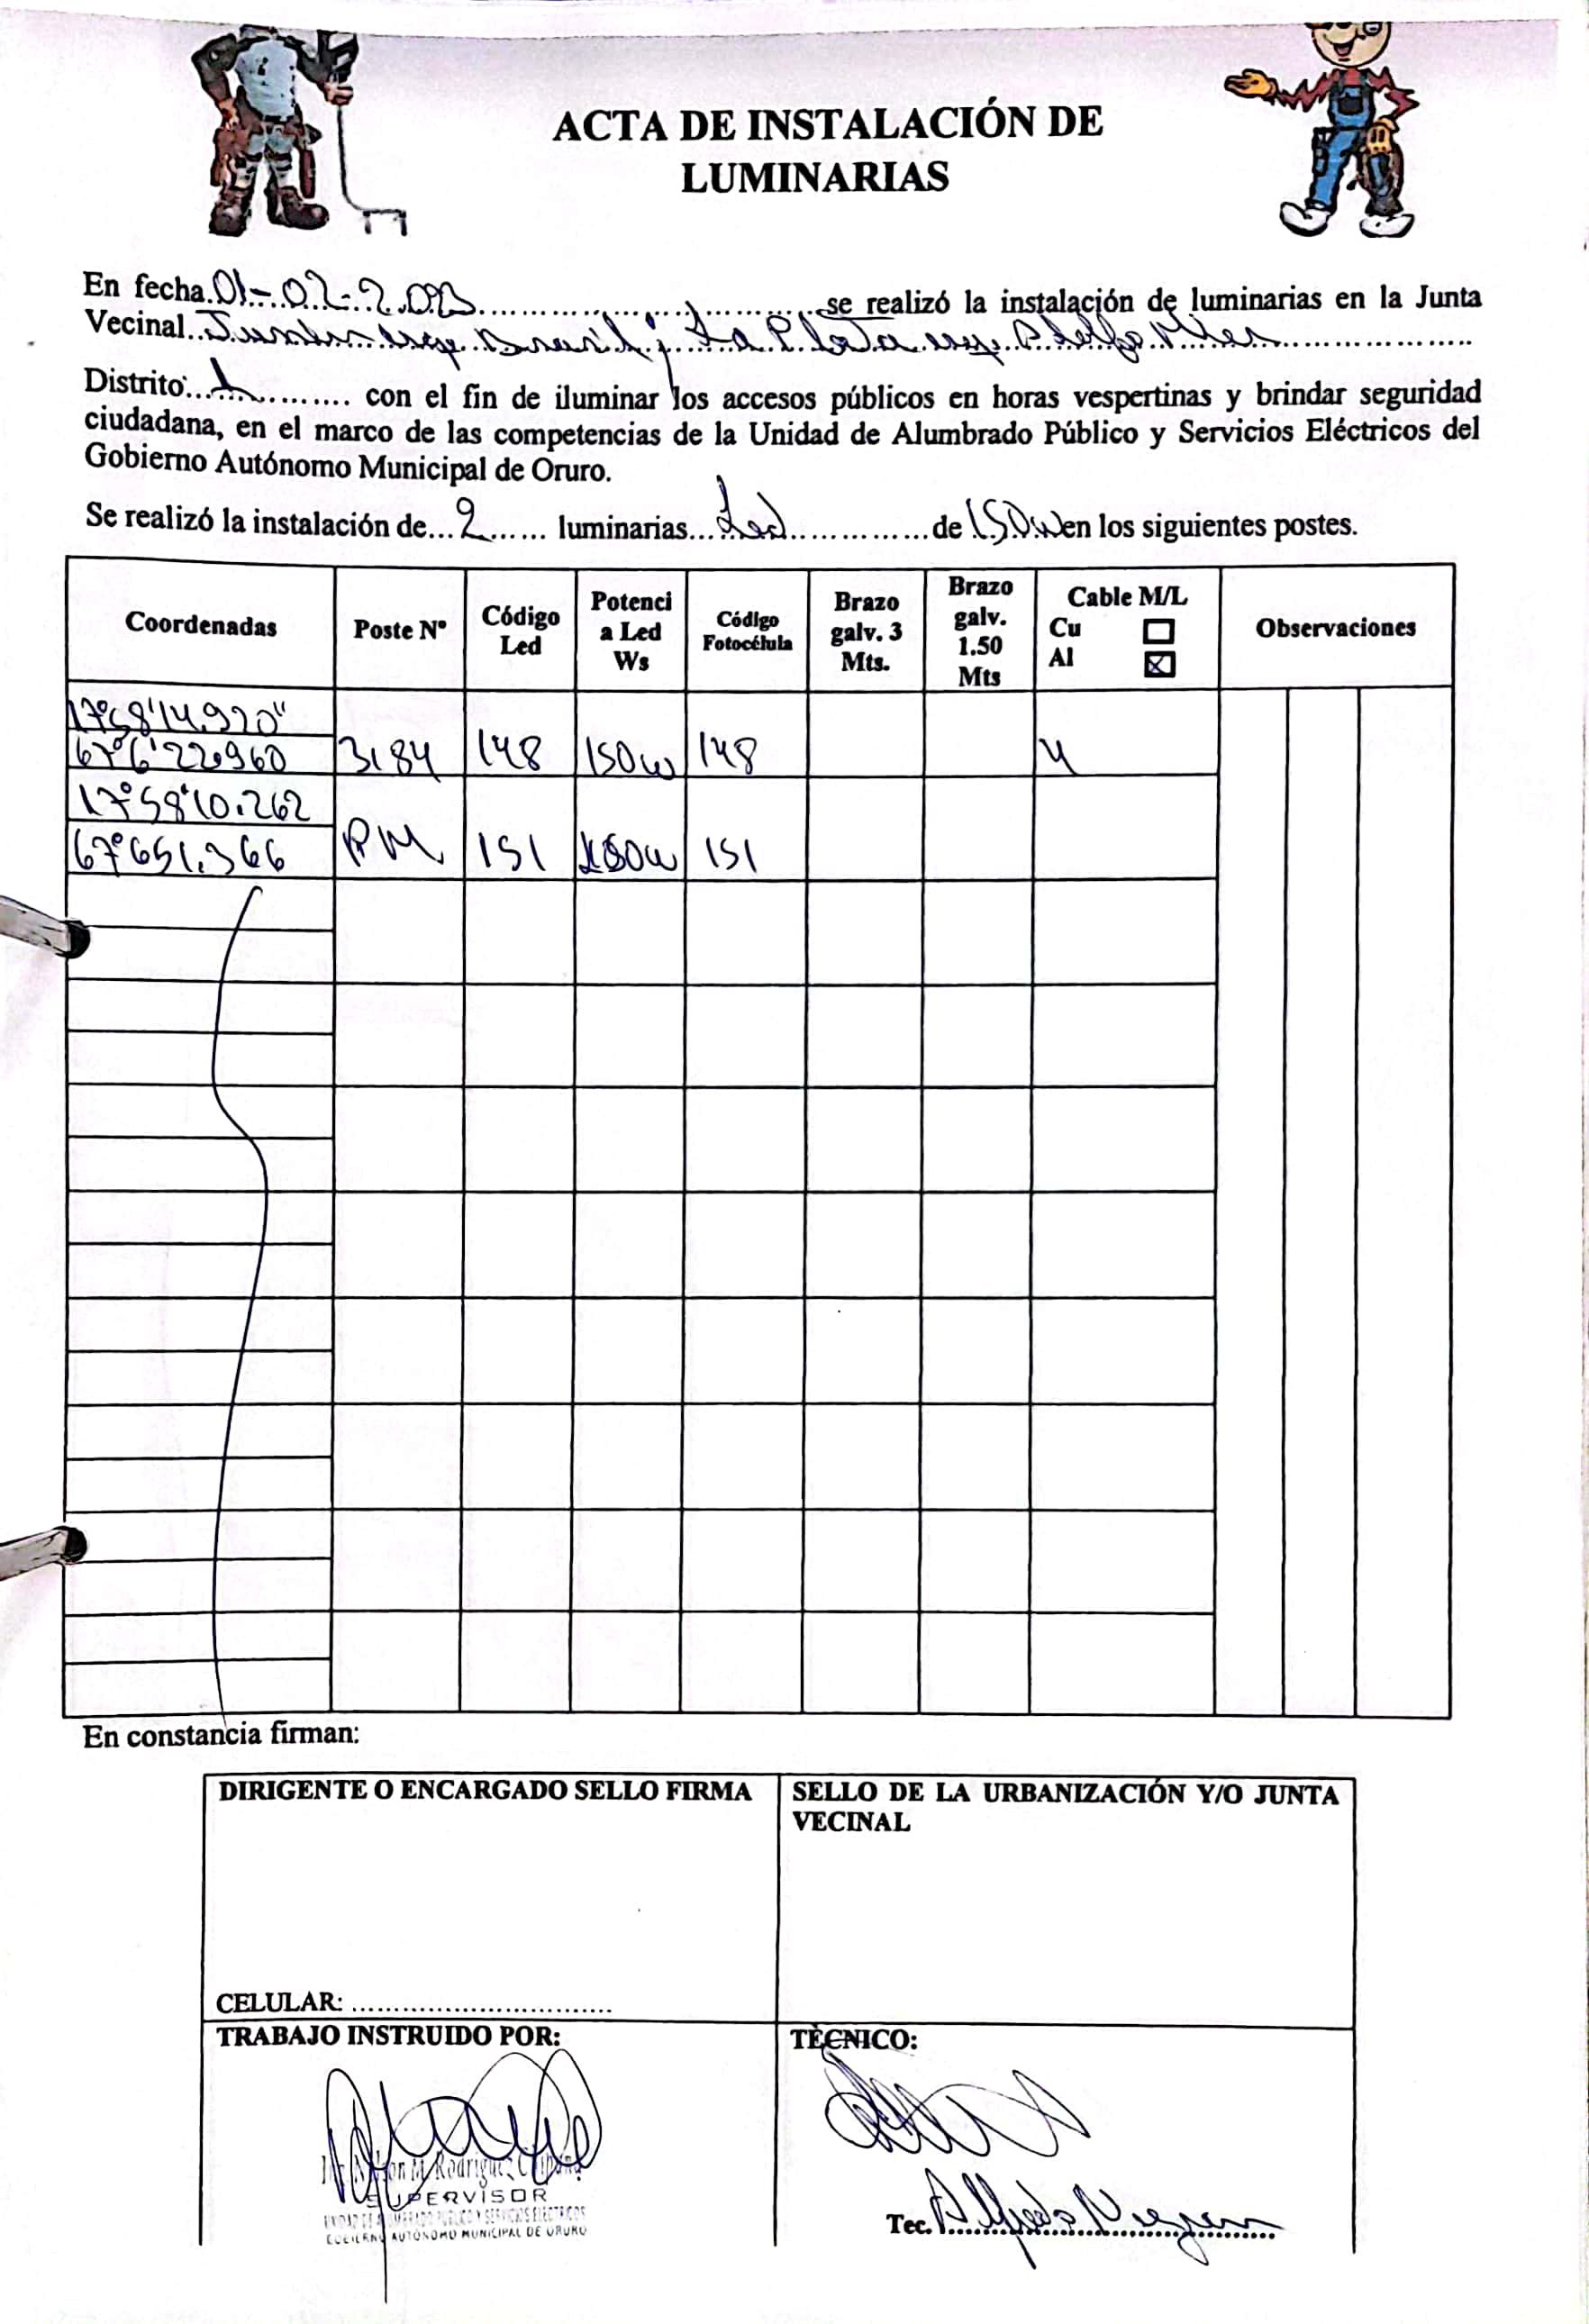 ACTA DE INSTALACIÓN DE
LUMINARIAS
En fecha 01-02-2023 se realizó la instalación de luminarias en la Junta
Vecinal Junin esq. Brasil y La Plata esq. Adolfo Mier
Distrito: 1 con el fin de iluminar los accesos públicos en horas vespertinas y brindar seguridad
ciudadana, en el marco de las competencias de la Unidad de Alumbrado Público y Servicios Eléctricos del
Gobierno Autónomo Municipal de Oruro.
Se realizó la instalación de 2 luminarias Led de 150w en los siguientes postes.
Coordenadas Poste N° Código Led Potencia Led Ws Código Fotocélula Brazo galv. 3 Mts. Brazo galv. 1.50 Mts Cable M/L Cu Al Observaciones
17°58'14.920"
67°6'22.960 3184 148 150w 148 4
17°58'10.262
67°651.366 PM 151 150w 151
En constancia firman:
DIRIGENTE O ENCARGADO SELLO FIRMA
SELLO DE LA URBANIZACIÓN Y/O JUNTA
VECINAL
CELULAR:
TRABAJO INSTRUIDO POR:
M. Rodriguez
SUPERVISOR
UNIDAD DE ALUMBRADO PUBLICO Y SERVICIOS ELECTRICOS
GOBIERNO AUTÓNOMO MUNICIPAL DE ORURO
TÈCNICO:
Tec. Alfredo